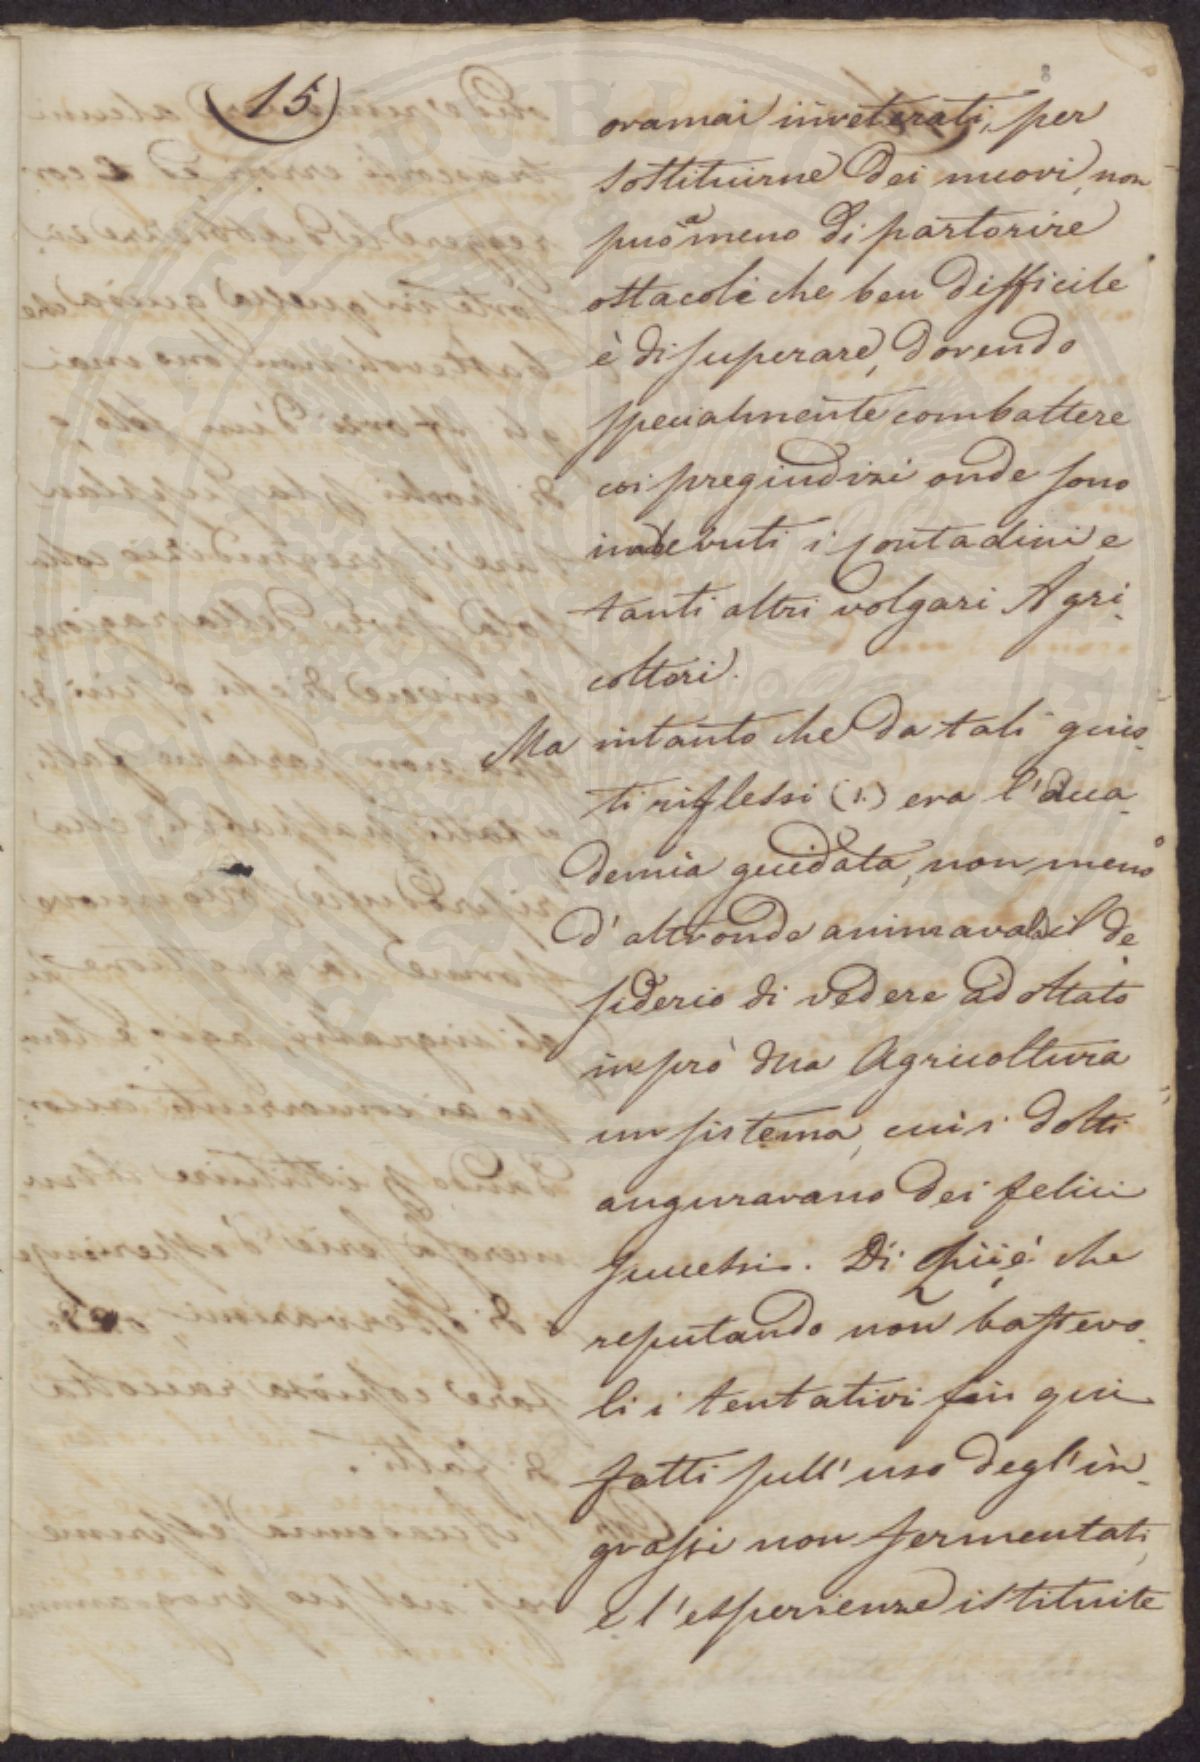 (15)
8
oramai inveterati, per
sostituirne dei nuovi, non
può a meno di partorire
ostacoli che ben difficile
è di superare, dovendo
specialmente combattere
coi pregiudizi onde sono
imbevuti i contadini, e
tanti altri volgari Agri-
coltori.
Ma intanto che da tali gius-
ti riflessi (1.) era l'Acca-
demia guidata, non meno
d'altronde animavala il de-
siderio di vedere adottato
in prò dlla Agricoltura
un sistema, cui i dotti
auguravano dei felici
successi. Di quì è che
reputando non bastevo-
li i tentativi fin qui
fatti sull'uso degl'in-
grassi non fermentati,
e l'esperienze istituite